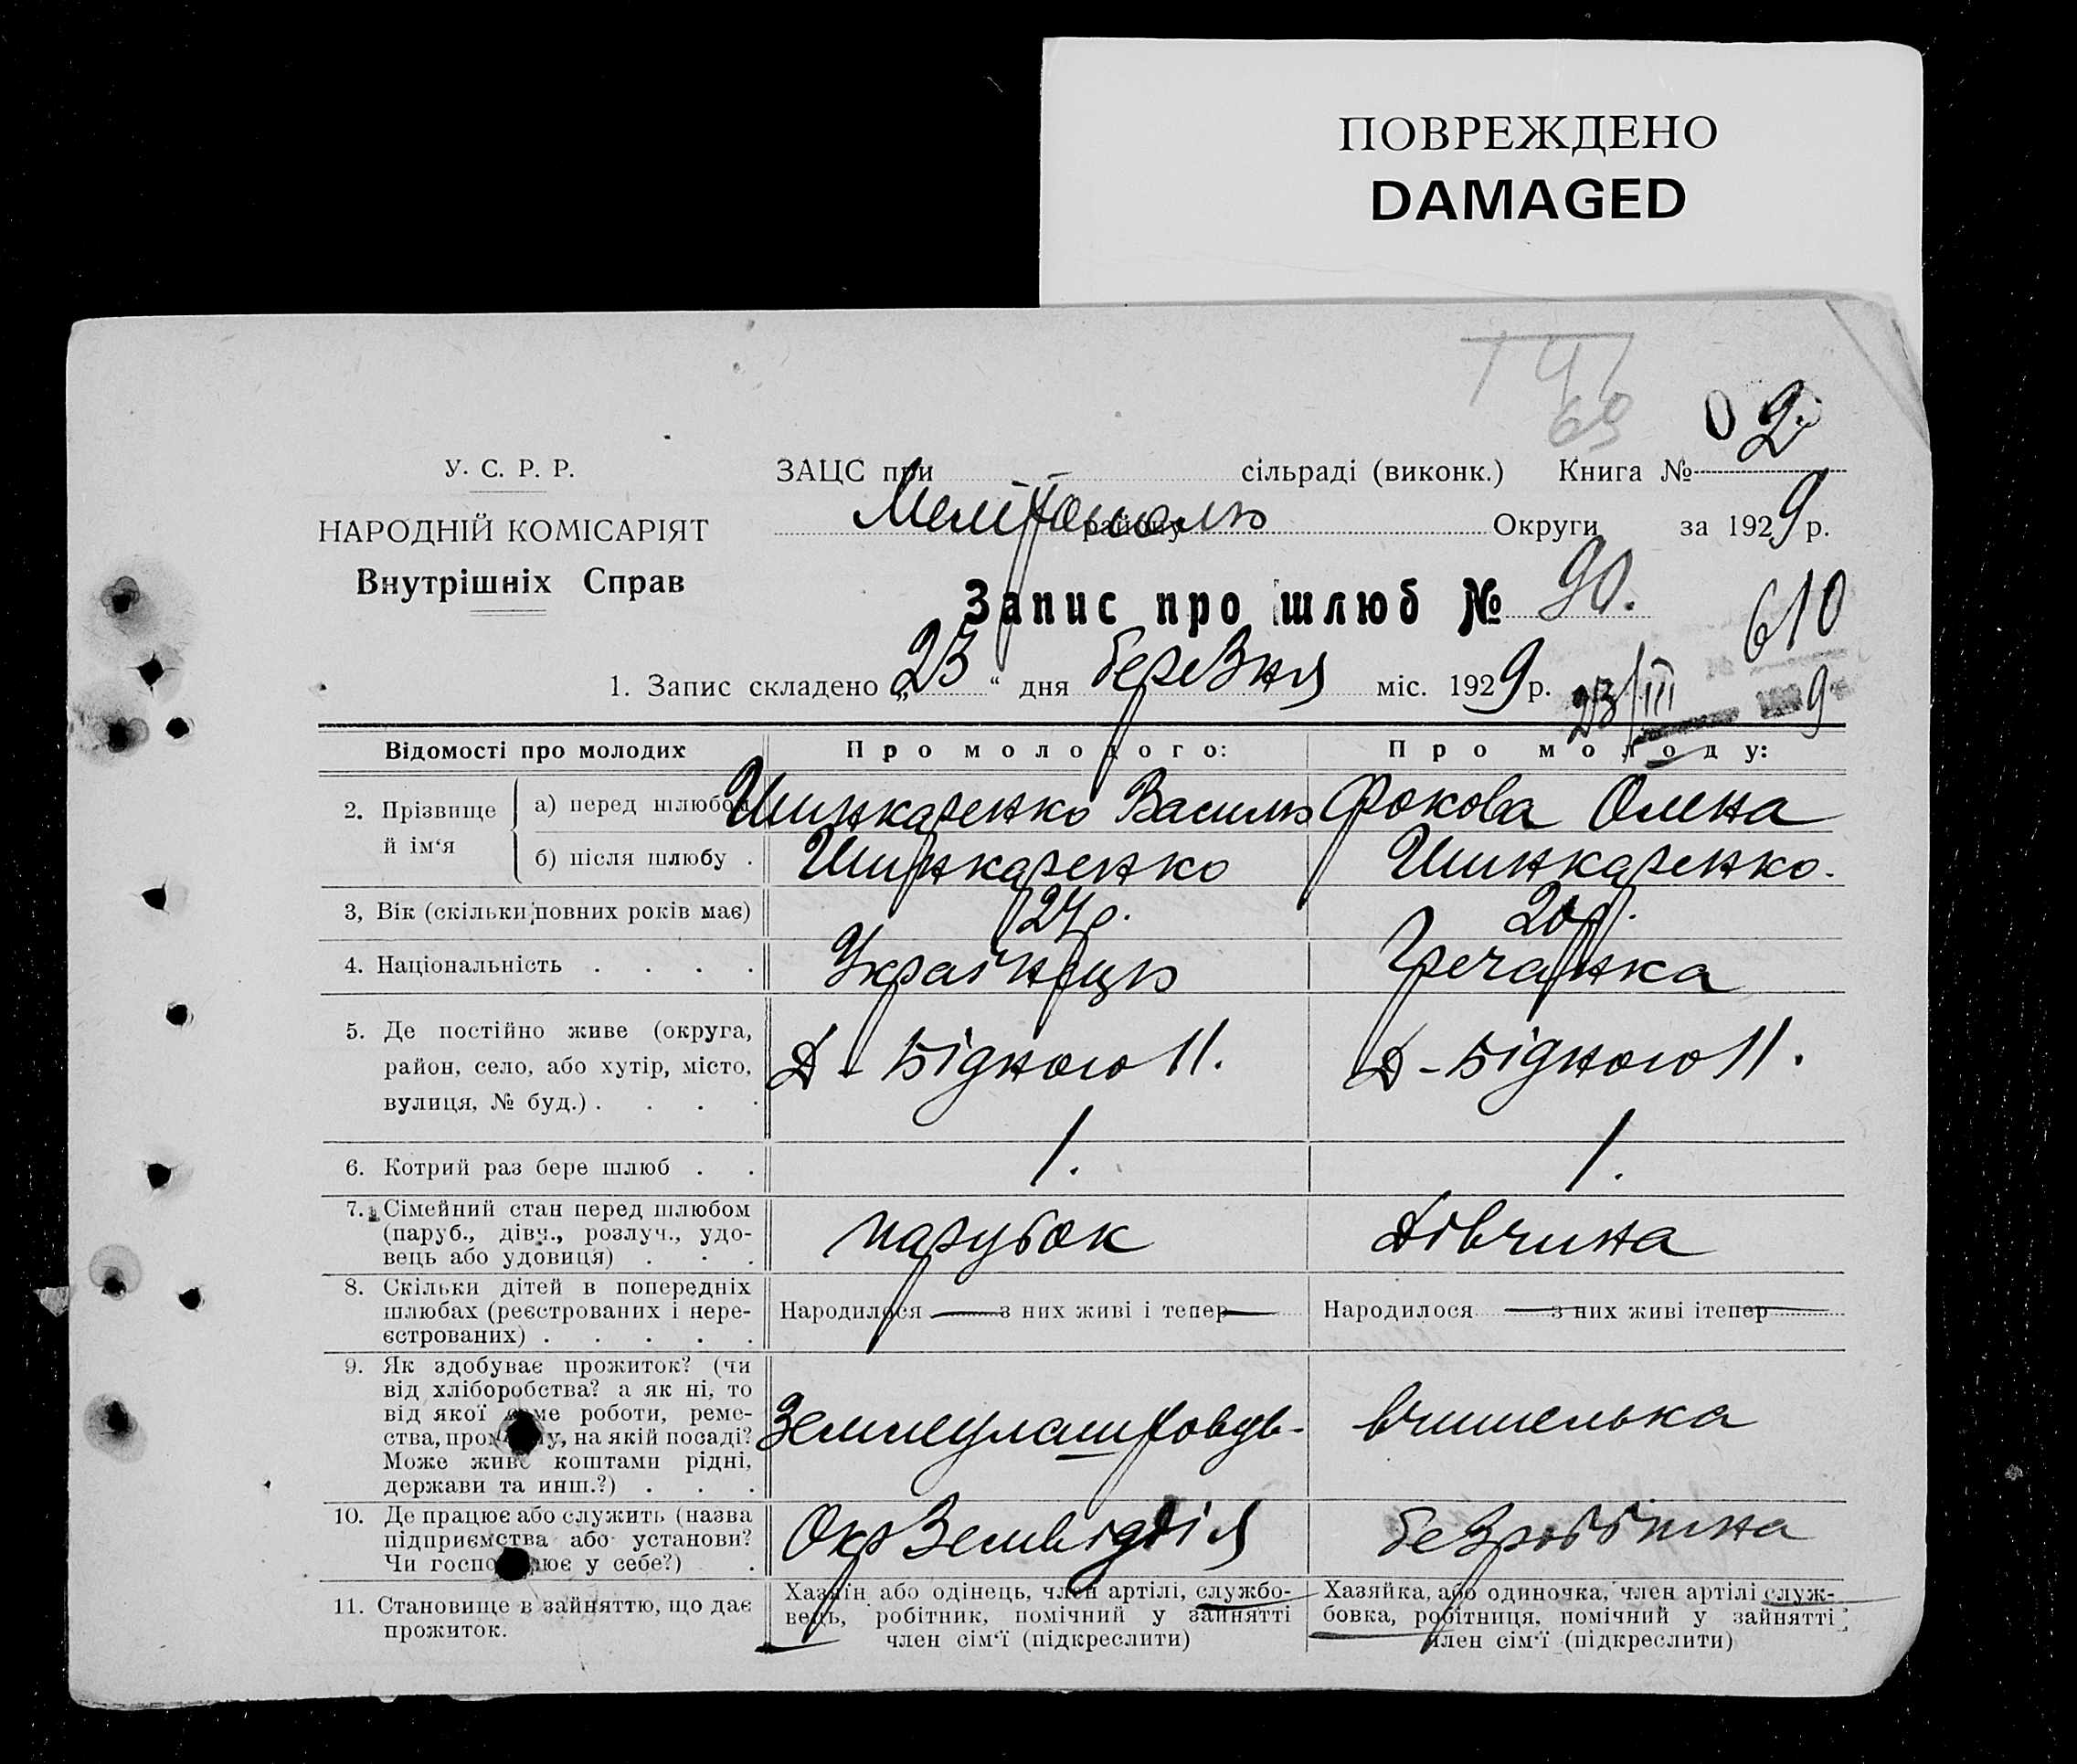 ПОВРЕЖДЕНО
DAMAGED
69
02
У. С. Р. Р.
ЗАЦС при сільраді (виконк.) Книга №
НАРОДНІЙ КОМІСАРІЯТ
Мелітополь району Округи за 1929 р.
Внутрішніх Справ
Запис про шлюб № 90.
610
1. Запис складено „23“ дня березня міс. 1929 р.
23/III 9
Відомості про молодих Про молодого: Про молоду:
2. Прізвище й ім‘я
а) перед шлюбом Шинкаренко Василь Фокова Олена
б) після шлюбу . Шинкаренко Шинкаренко.
3, Вік (скільки повних років має) 24 р. 20 р.
4. Національність . . . . Українець Гречанка
5. Де постійно живе (округа,
район, село, або хутір, місто,
вулиця, № буд.) . . . .
Д-Бідного 11. Д-Бідного 11.
6. Котрий раз бере шлюб . . 1. 1.
7. Сімейний стан перед шлюбом
(паруб., дівч., розлуч., удо-
вець або удовиця) . . .
парубок Дівчина
8. Скільки дітей в попередніх
шлюбах (реєстрованих і нере-
єстрованих) . . . . .
Народилося — з них живі і тепер — Народилося — з них живі ітепер —
9. Як здобуває прожиток? (чи
від хліборобства? а як ні, то
від якої саме роботи, реме-
ства, промислу, на якій посаді?
Може живе коштами рідні,
держави та инш.?) . . .
вчителька
10. Де працює або служить (назва
підприємства або установи?
Чи господарює у себе?) .
ОкрЗемвідділ безробітна
11. Становище в зайняттю, що дає
прожиток.
Хазяїн або одінець, член артілі, службо-
вець, робітник, помічний у зайнятті
член сім‘ї (підкреслити)
Хазяйка, або одиночка, член артілі служ-
бовка, робітниця, помічний у зайнятті
член сім‘ї (підкреслити)